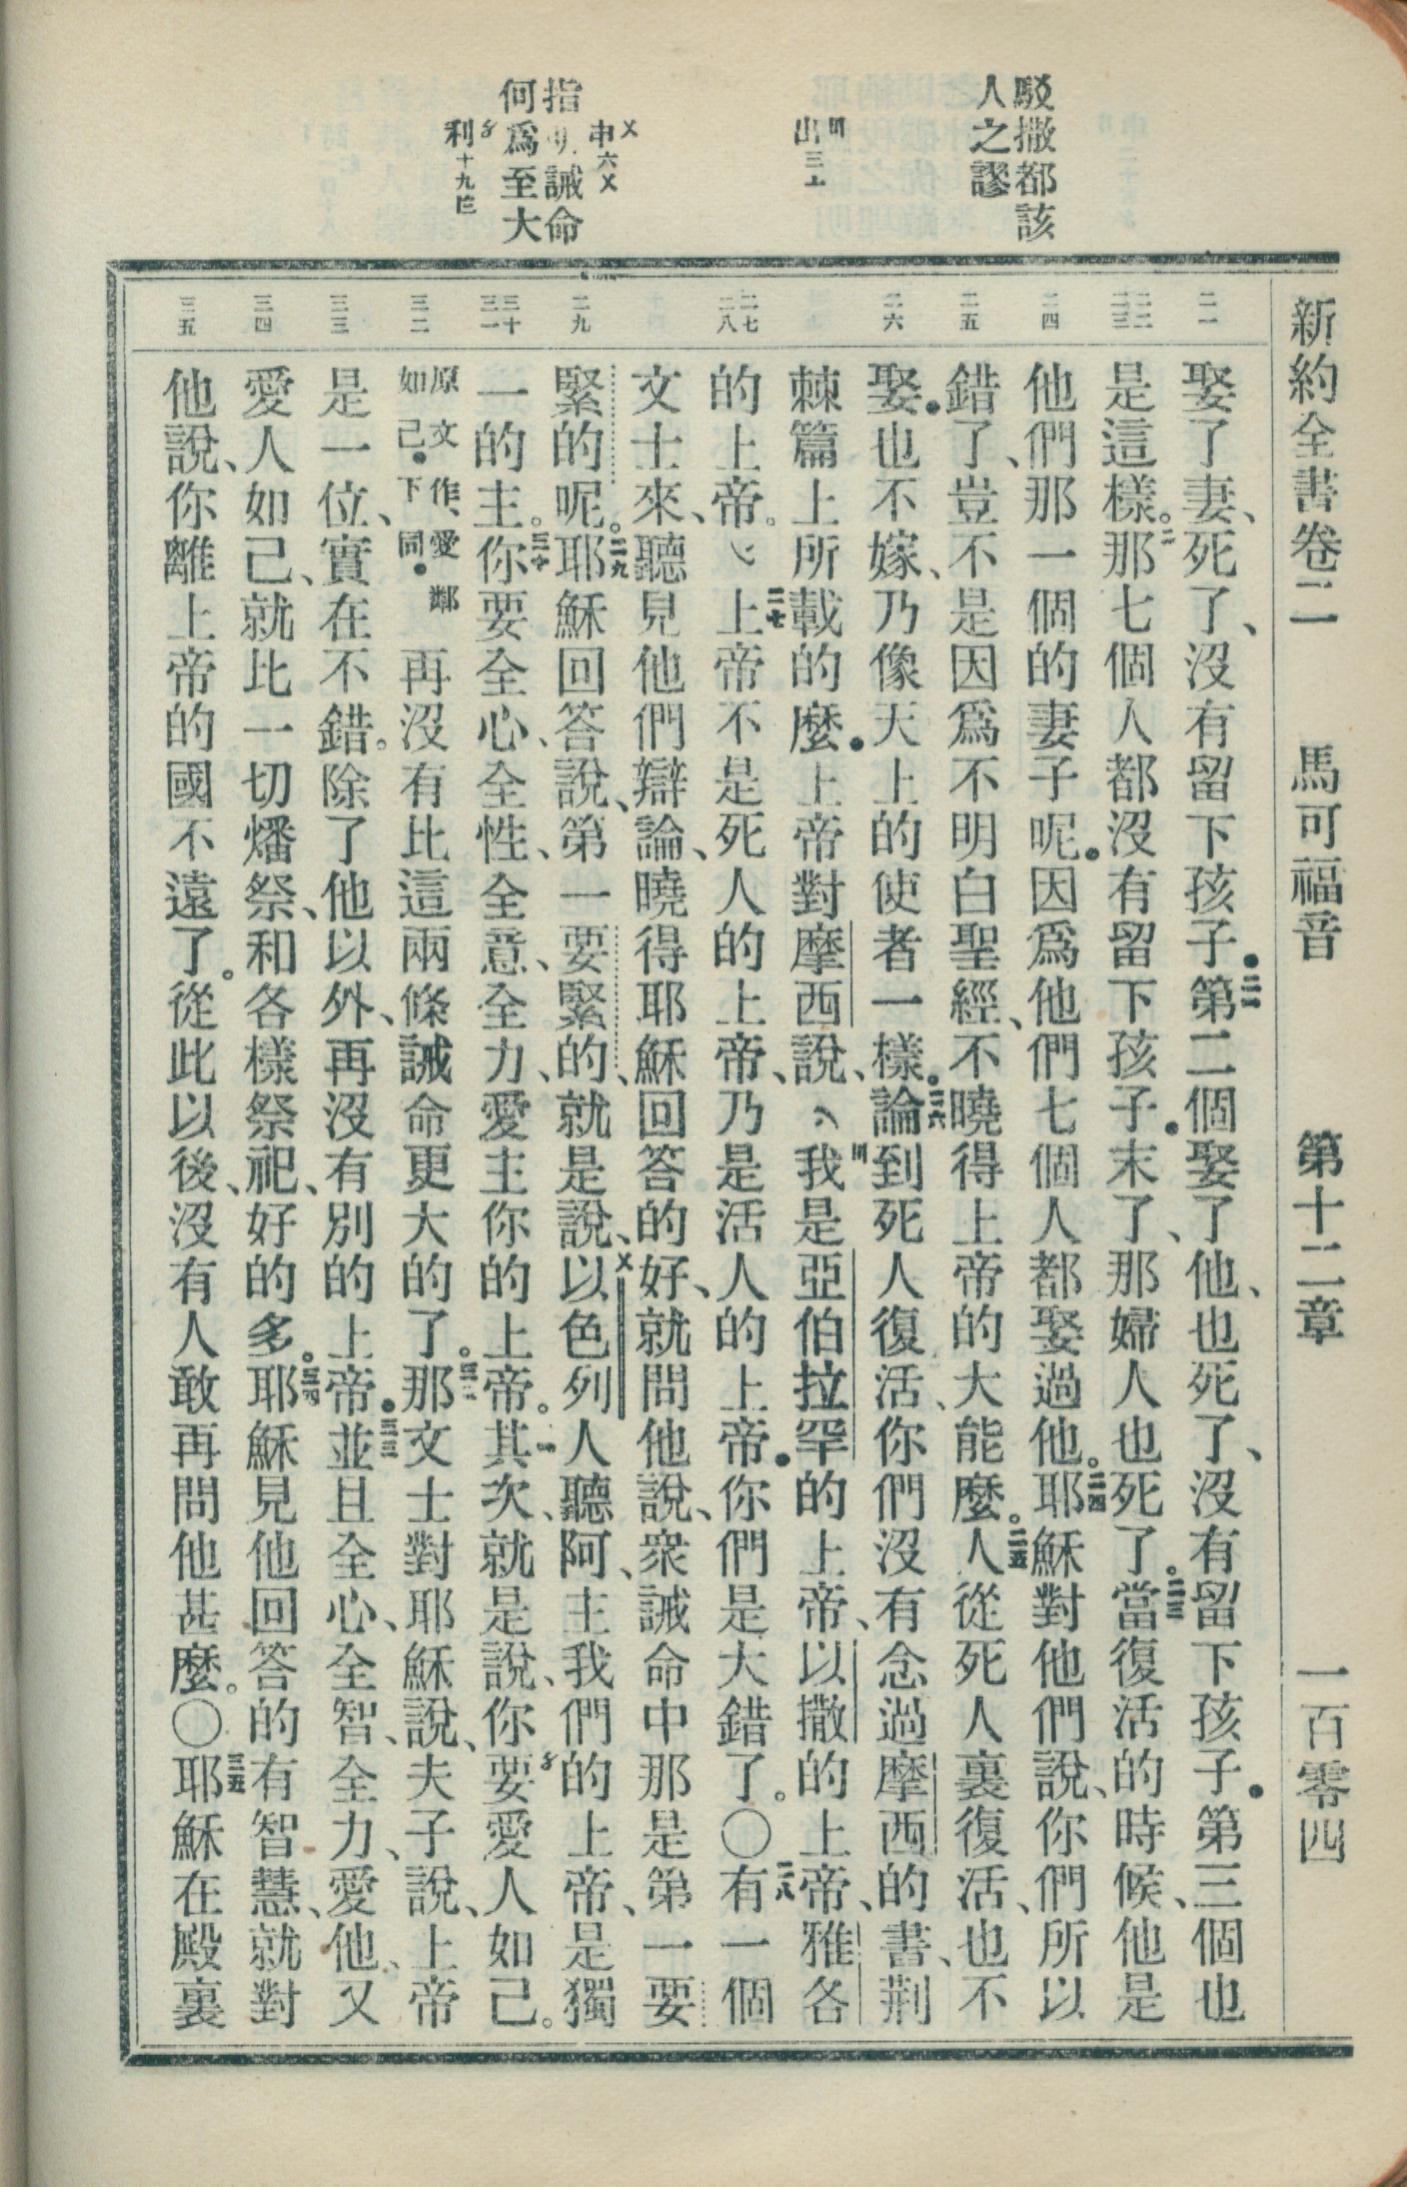 新約全書卷二　馬可福音　第十二章　一百零四
駁撒都該
人之謬
出三
申六
指明誡命
何爲至大
利十九
二一
二二
二三
二四
二五
二六
二七
二八
二九
三十
三一
三二
三三
三四
三五
娶了妻、死了、沒有留下孩子●二二第二個娶了他、也死了、沒有留下孩子●第三個也
是這樣。那七個人都沒有留下孩子●末了、那婦人也死了。二三當復活的時候、他是
他們那一個的妻子呢●因爲他們七個人都娶過他。二四耶穌對他們說、你們所以
錯了、豈不是因爲不明白聖經、不曉得上帝的大能麼。二五人從死人裏復活、也不
娶●也不嫁、乃像天上的使者一樣。二六論到死人復活、你們沒有念過摩西的書、荆
棘篇上所載的麼●上帝對摩西說、我是亞伯拉罕的上帝、以撒的上帝、雅各
的上帝。二七上帝不是死人的上帝、乃是活人的上帝●你們是大錯了。〇二八有一個
文士來、聽見他們辯論、曉得耶穌回答的好、就問他說、衆誡命中那是第一要
緊的呢。二九耶穌回答說、第一要緊的、就是說、以色列人聽阿、主我們的上帝、是獨
一的主。三十你要全心、全性、全意、全力、愛主你的上帝。其次、就是說、你要愛人如己。
原文作愛鄰
如己●下同●
再沒有比這兩條誡命更大的了。三二那文士對耶穌說、夫子說、上帝
是一位、實在不錯。除了他以外、再沒有別的上帝●三三並且全心、全智、全力、愛他、又
愛人如己、就比一切燔祭、和各樣祭祀、好的多。三四耶穌見他回答的有智慧、就對
他說、你離上帝的國不遠了。從此以後、沒有人敢再問他甚麼。〇三五耶穌在殿裏